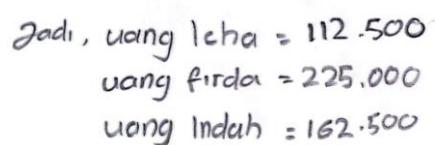 Jadi, uang Icha = 112.500
uang firda = 225.000
uang Indah = 162.500